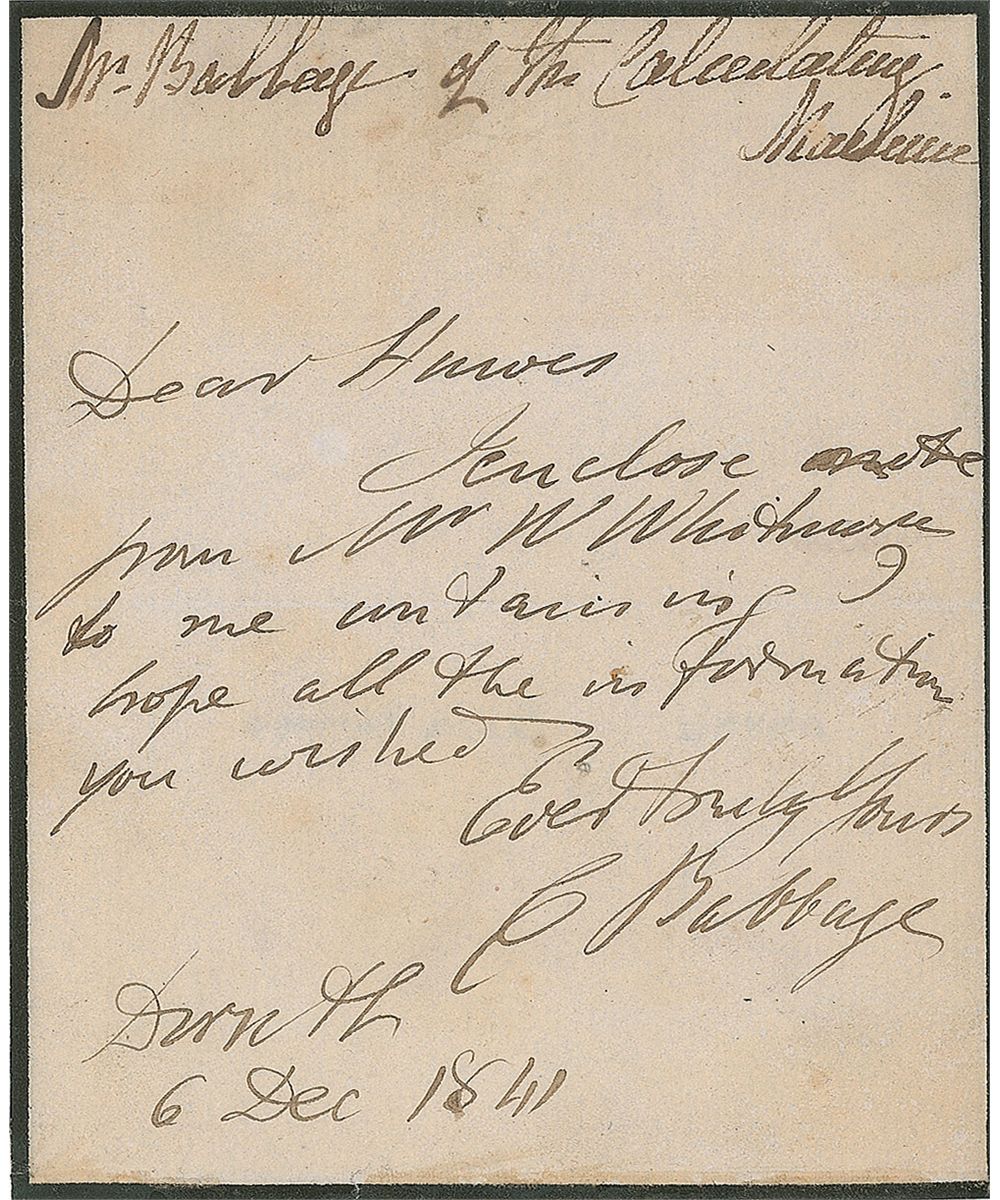 Mr. Babbage of the Calculating
Machine
Dear Hawes
I enclose a note
from Mr W Whitmore
to me containing I
hope all the information
you wished
Ever truly Yours
C Babbage
Dorset
6 Dec 1841